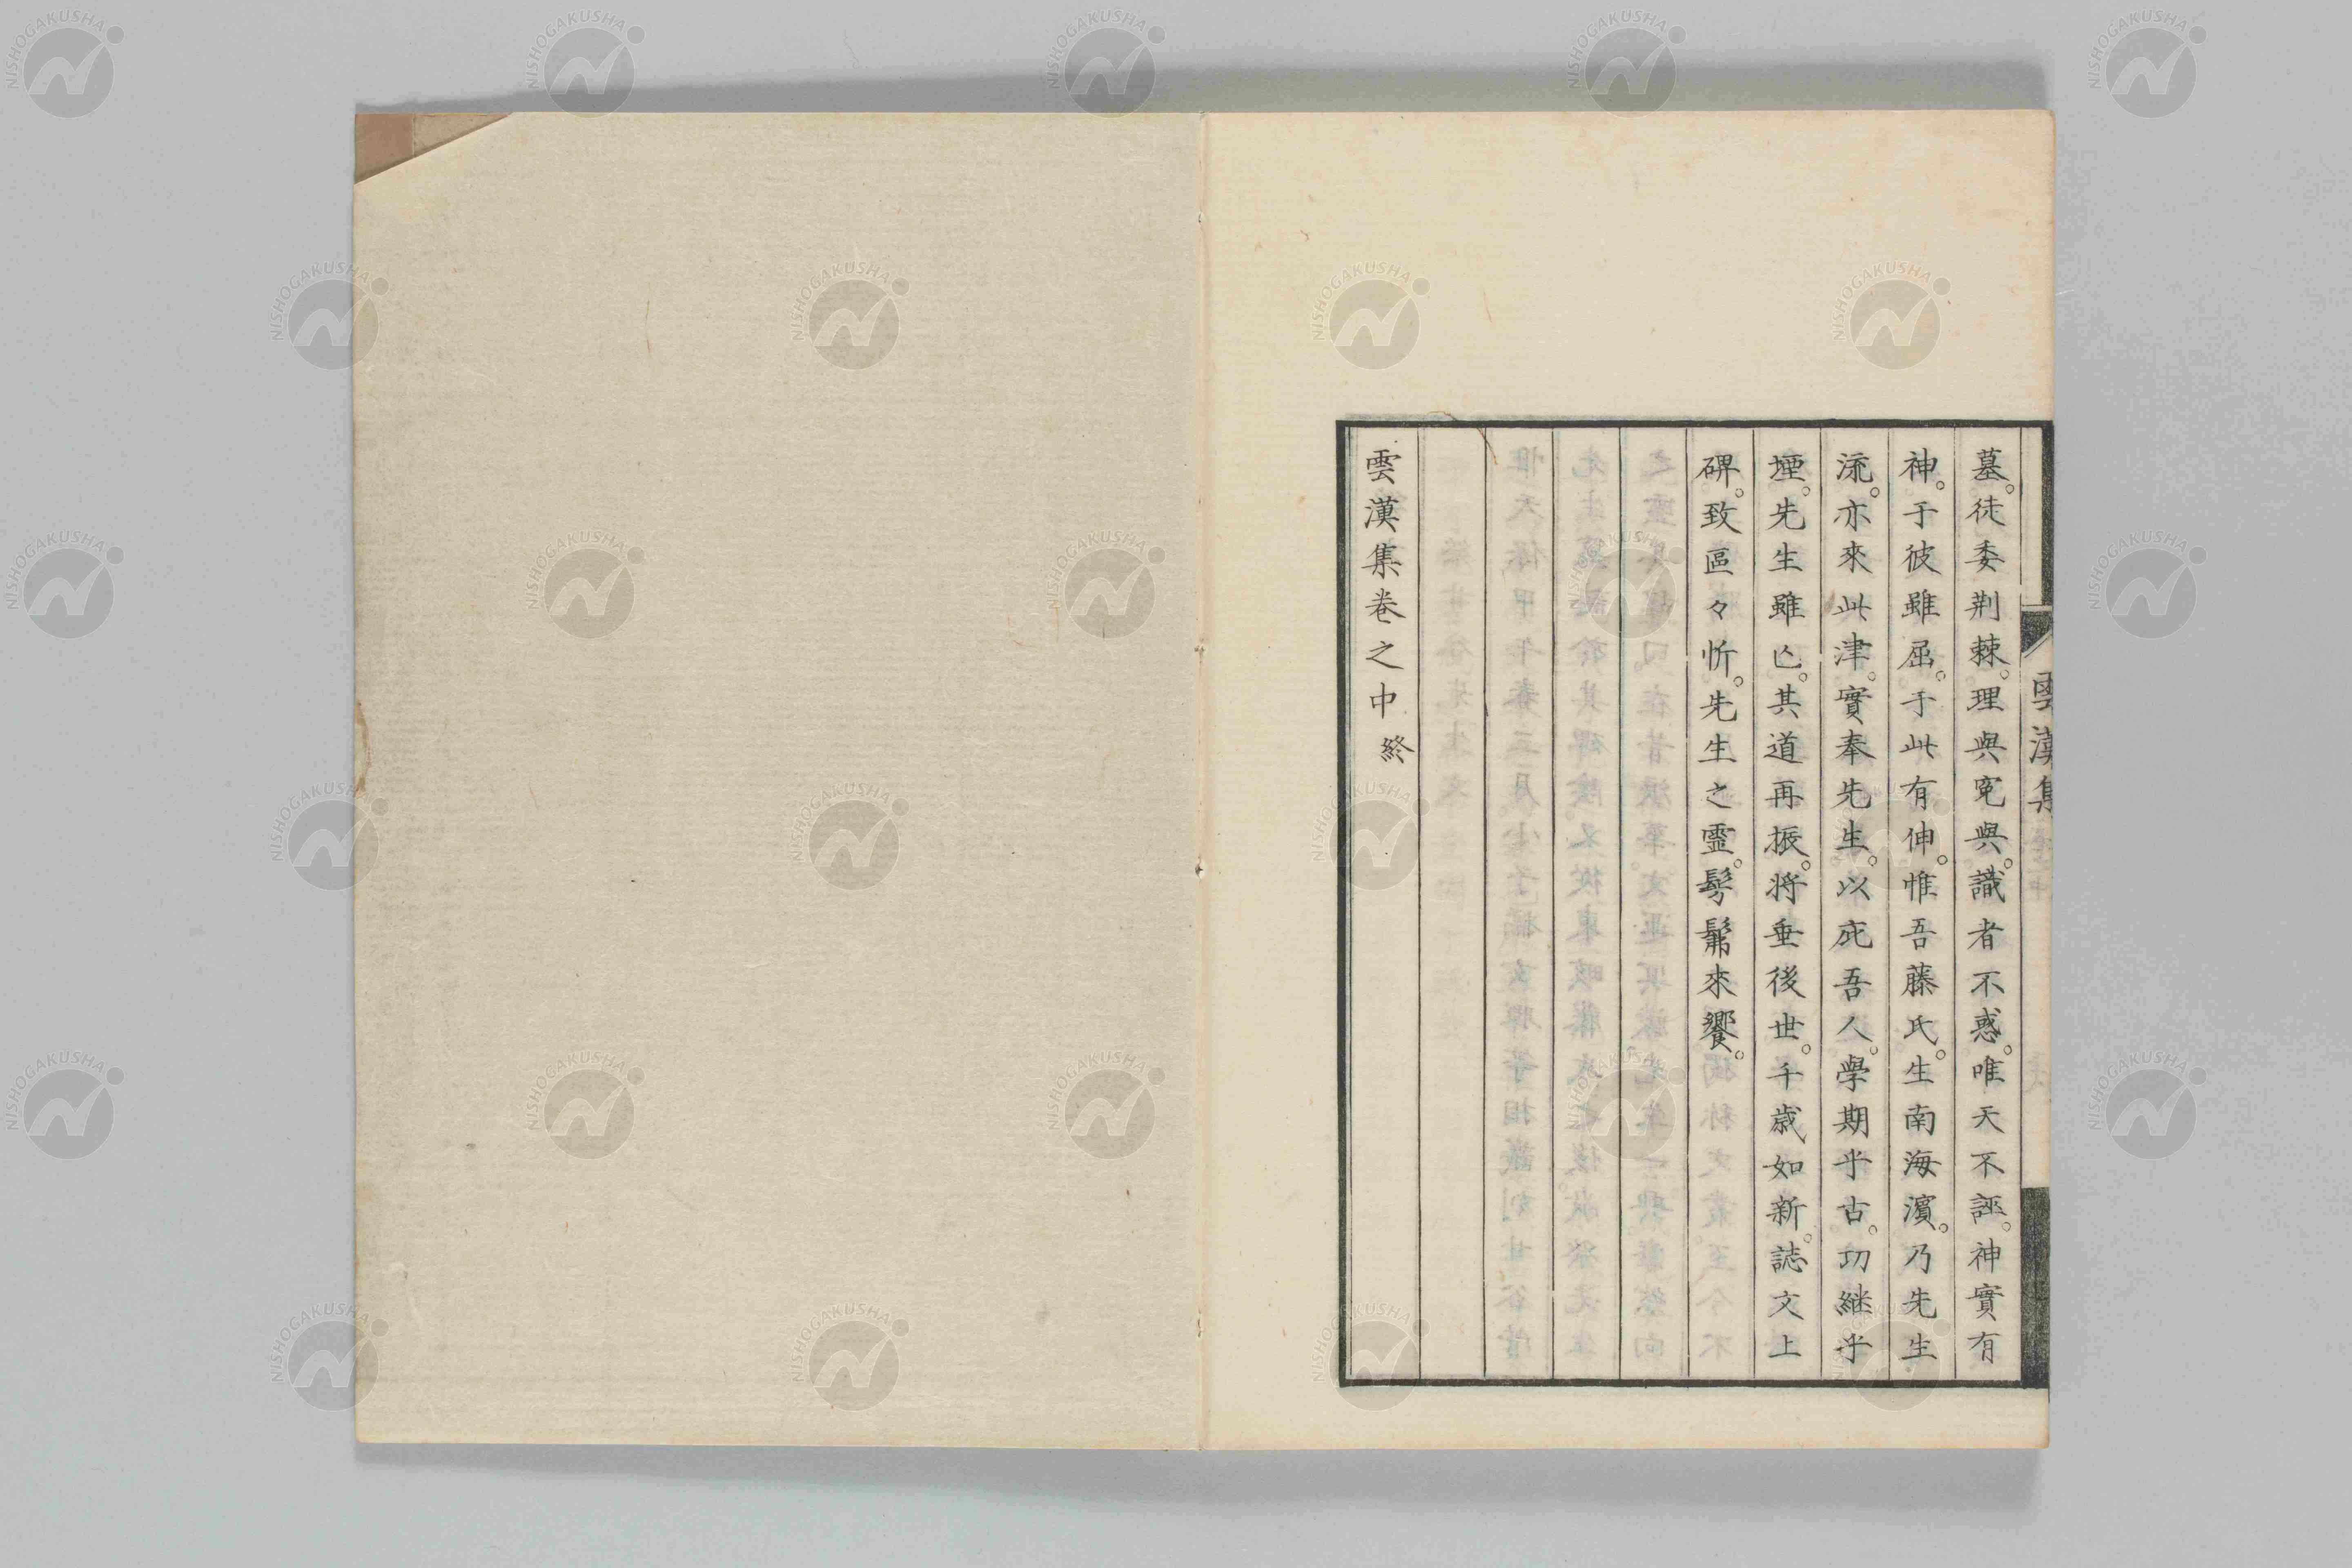 墓。徒委荆棘。理與寃與。識者不惑。唯天不誣。神實有
神。于彼雖屈。于此有伸。惟吾藤氏。生南海濵。乃先生
流。亦來此津。實奉先生。以庇吾人。學期乎古。功継乎
堙。先生雖亾。其道再振。将垂後世。千歳如新。誌文上
碑。致區々忻。先生之靈。髣髴來饗。
雲漢集卷之中終
雲漢集
NISHOGAKUSHA